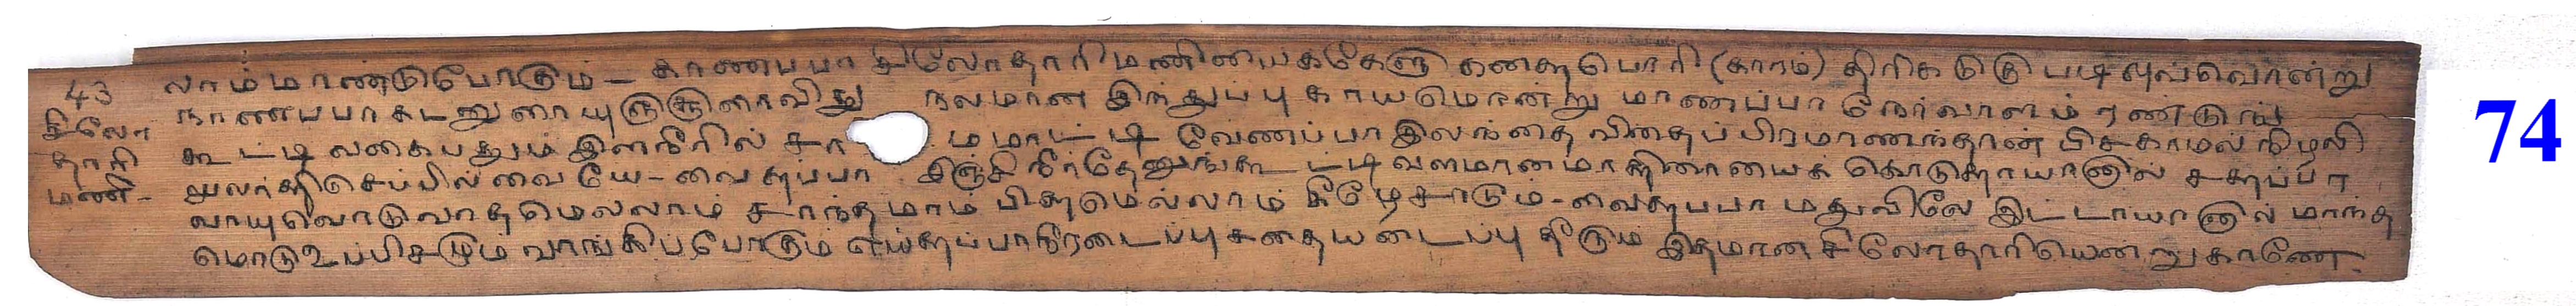 43 லாம்மாண்டுபோகும் - காணப்பா சிலோதாரிமணியைக்கேளு கனதுபொரி (காரம்) திரிகடுகு படிபுலவ்வொன்று
நாணப்பா கடறுரையுருசூளாவிது நலமான இந்துப்பு காயமொன்று மாணப்பா நேர்வாளம் ரண்டுங்
சிலோ தாரி மணி -
கூட்டி வகைபதும் இளநீரில் சா மமாட்டி வேணப்பா இலந்தை விதைப்பிரமாணந்தான் பிசகாமல் நிழலி
லுலர்த்திசெப்பில்வையே - வைதப்பா இஞ்சிநீர்தேனுங்கூட்டி வளமானமாத்திரையைக் கொடுத்தாயானால் சதப்பா
வாயுவொடுவாதமெல்லாம் சாந்தமாம் பித்தமெல்லாம் கீழேசாடும் - வைதப்பா மதுவிலே இட்டாயானால் மாந்த
மொடு உப்பிசமும் வாங்கிப்போகும் எய்தப்பாநீரடைப்பு சதையடைப்பு தீரும் இதமான சிலோதாரியென்றுகாணே
74